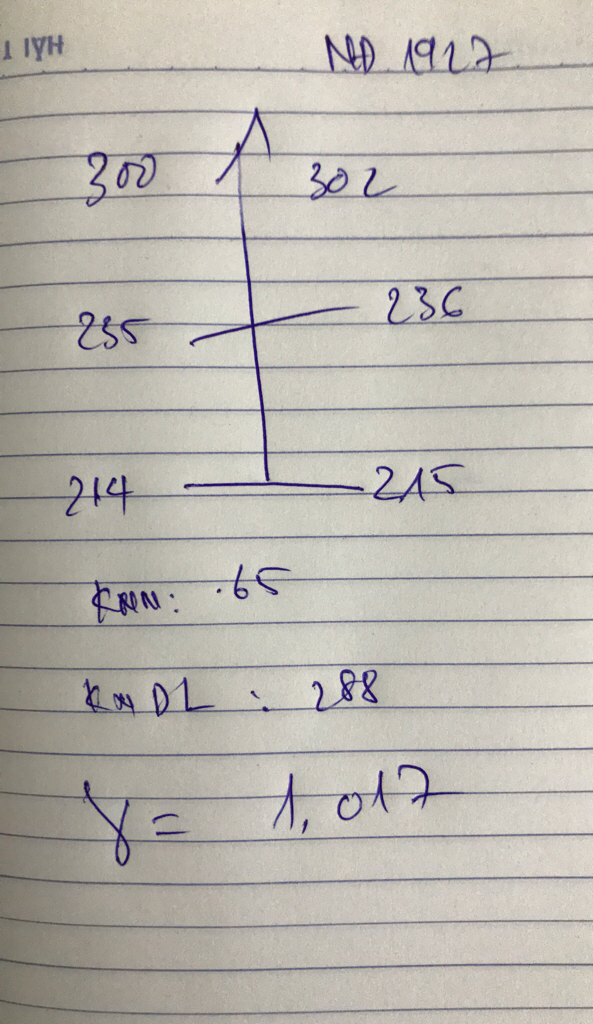 ND 1927
300 302
235 236
214 215
KMN: .65
KMDL : 288
γ = 1,017